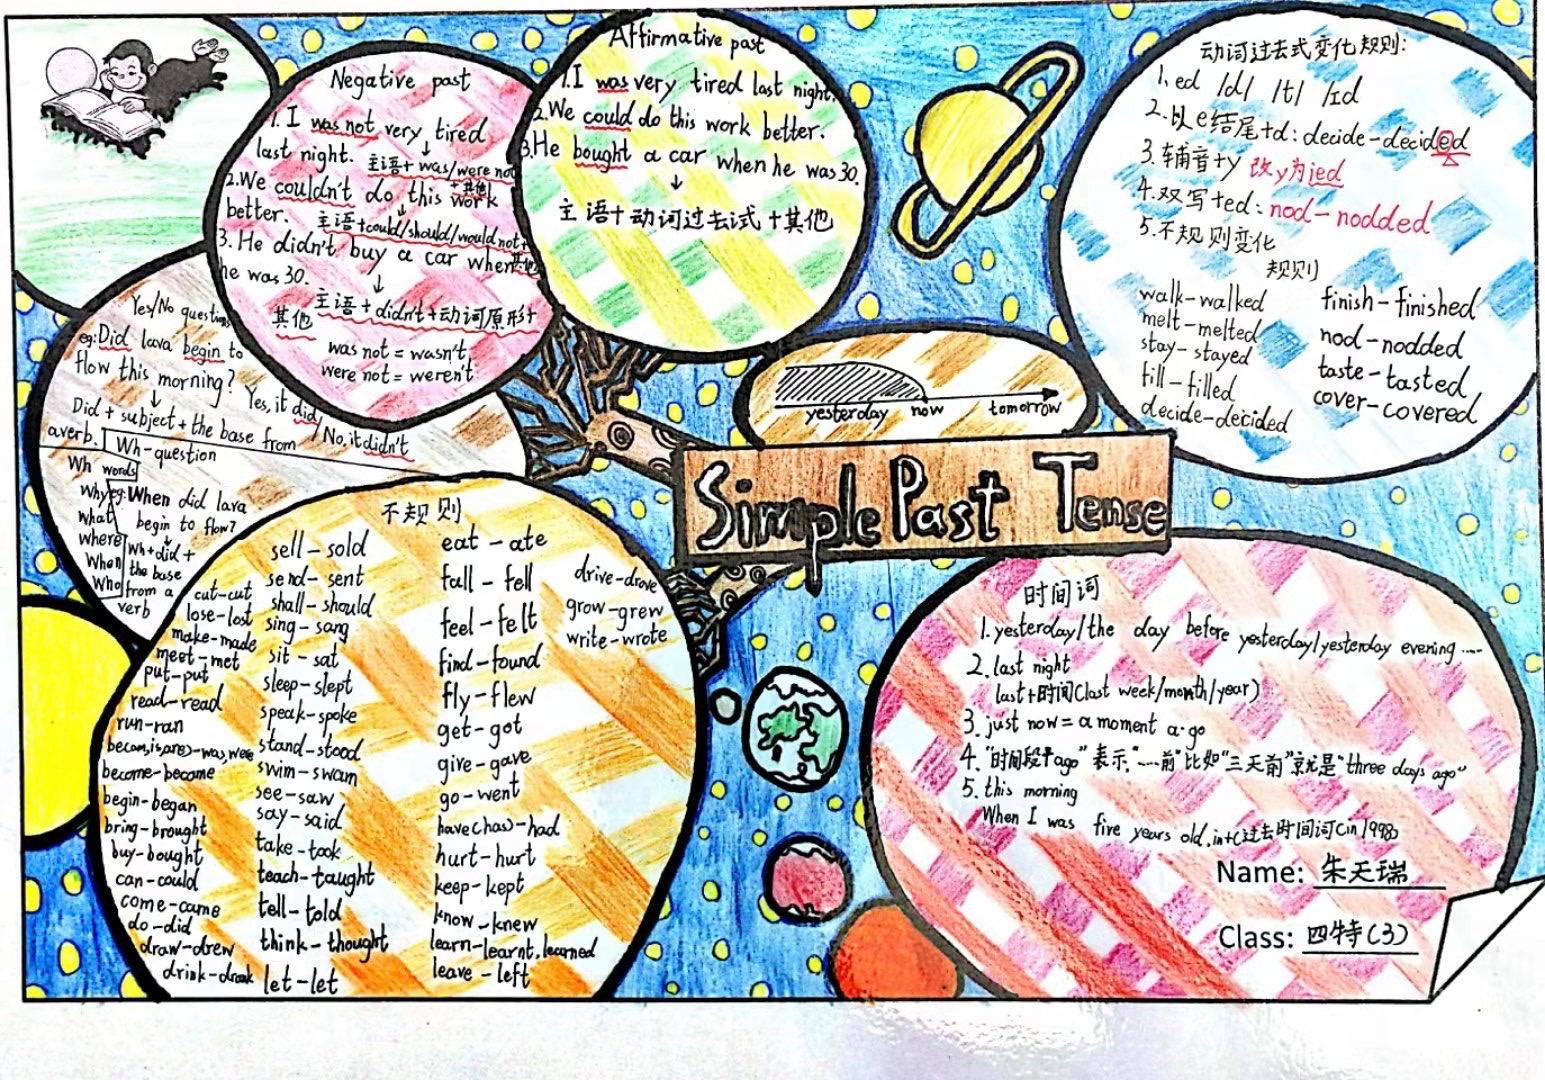 Negative past
1. I was not very tired
last night.
主语+was/were not
+其他
2. We couldn't do this work
better.
主语+could/should/would not+
其他
3. He didn't buy a car when
he was 30.
主语+didn't+动词原形+
其他
was not = wasn't
were not = weren't
Affirmative past
1. I was very tired last night.
2. We could do this work better.
3. He bought a car when he was 30.
主语+动词过去试+其他
动词过去式变化规则:
1. ed /d/ /t/ /ɪd
2. 以e结尾+d: decide-decided
3. 辅音+y 改y为ied
4. 双写+ed: nod-nodded
5. 不规则变化
规则
walk-walked
melt-melted
stay-stayed
fill-filled
decide-decided
finish-finished
nod-nodded
taste-tasted
cover-covered
Yes/No questions
eg: Did lava begin to
flow this morning?
Yes, it did/No, it didn't
Did + subject + the base from
averb.
Wh-question
Wh words
Why
What
where
When
Who
eg: When did lava
begin to flow?
Wh+did+
the base
from a
verb
yesterday now tomorrow
Simple Past Tense
不规则
cut-cut
lose-lost
make-made
meet-met
put-put
read-read
run-ran
be(am,is,are)-was,were
become-became
begin-began
bring-brought
buy-bought
can-could
come-came
do-did
draw-drew
drink-drank
sell-sold
send-sent
shall-should
sing-sang
sit-sat
sleep-slept
speak-spoke
stand-stood
swim-swam
see-saw
say-said
take-took
teach-taught
tell-told
think-thought
let-let
eat-ate
fall-fell
feel-felt
find-found
fly-flew
get-got
give-gave
go-went
have(has)-had
hurt-hurt
keep-kept
know-knew
learn-learnt, learned
leave-left
drive-drove
grow-grew
write-wrote
时间词
1. yesterday/the day before yesterday/yesterday evening ……
2. last night
last+时间(last week/month/year)
3. just now = a moment a go
4. "时间段+ago"表示"……前"比如"三天前"就是"three days ago"
5. this morning
When I was five years old, in+(过去时间词(in 1998)
Name: 朱天瑞
Class: 四特(3)